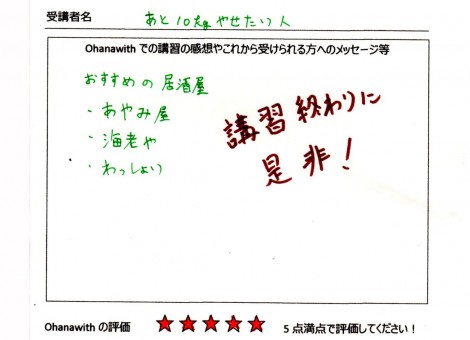 受講者名 あと10kgやせたい人
Ohanawith での講習の感想やこれから受けられる方へのメッセージ等
おすすめの居酒屋
・あやみ屋
・海老や
・わっしょい
講習終わりに
是非！
Ohanawith の評価 ★★★★★ 5点満点で評価してください！